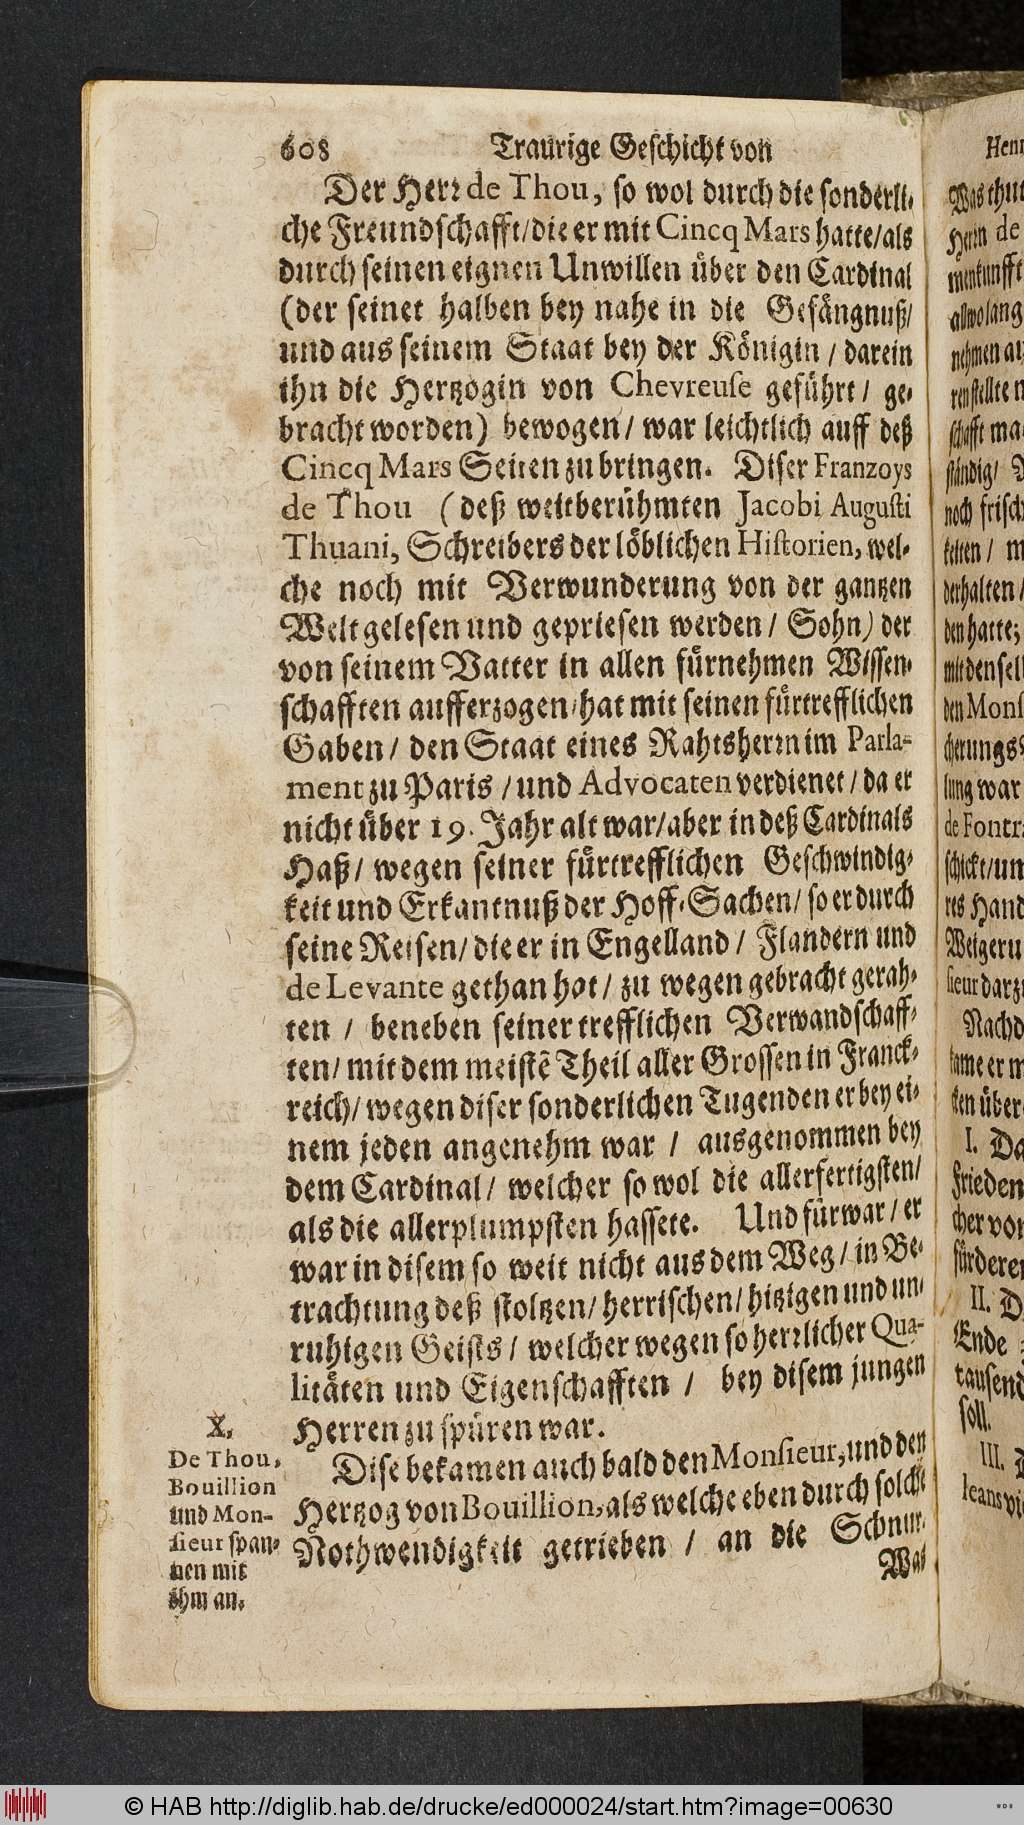 608 Traurige Geschicht von
Der Herr de Thou, so wol durch die sonderli-
che Freundschafft/die er mit Cincq Mars hatte/als
durch seinen eignen Unwillen über den Cardinal
(der seinet halben bey nahe in die Gefängnuß/
und aus seinem Staat bey der Königin / darein
ihn die Hertzogin von Chevreuse geführt / ge-
bracht worden) bewogen / war leichtlich auff deß
Cincq Mars Seiten zu bringen. Diser Franzoys
de Thou (deß weitberühmten Jacobi Augusti
Thuani, Schreibers der löblichen Historien, wel-
che noch mit Verwunderung von der gantzen
Welt gelesen und gepriesen werden / Sohn) der
von seinem Vatter in allen fürnehmen Wissen-
schafften aufferzogen/hat mit seinen fürtrefflichen
Gaben / den Staat eines Rahtsherrn im Parla-
ment zu Paris / und Advocaten verdienet / da er
nicht über 19. Jahr alt war/aber in deß Cardinals
Haß / wegen seiner fürtrefflichen Geschwindig-
keit und Erkantnuß der Hoff-Sachen / so er durch
seine Reisen/ die er in Engelland / Flandern und
de Levante gethan hat / zu wegen gebracht gerah-
ten / beneben seiner trefflichen Verwandschaff-
ten/ mit dem meistē Theil aller Grossen in Franck-
reich/ wegen diser sonderlichen Tugenden er bey ei-
nem jeden angenehm war / ausgenommen bey
dem Cardinal / welcher so wol die allerfertigsten/
als die allerplumpsten hassete. Und fürwar / er
war in disem so weit nicht aus dem Weg / in Be-
trachtung deß stoltzen/ herrischen/ hitzigen und un-
ruhigen Geists / welcher wegen so herrlicher Qua-
litäten und Eigenschafften / bey disem jungen
Herren zu spüren war.
X.
De Thou,
Bouillion
und Mon-
sieur span-
nen mit
ihm an.
Dise bekamen auch bald den Monsieur, und den
Hertzog von Bouillion, als welche eben durch solche
Nothwendigkeit getrieben / an die Schnur.
Was
© HAB http://diglib.hab.de/drucke/ed000024/start.htm?image=00630